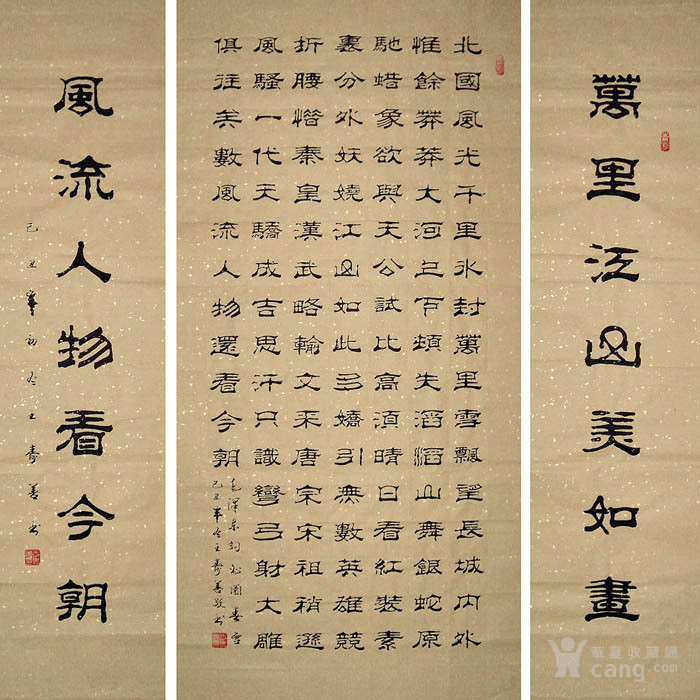 萬里江山美如畫
北國風光千里氷封萬里雪飄望長城内外
惟餘莽莽大河上下頓失滔滔山舞銀蛇原
馳蜡象欲與天公試比高須晴日看紅裝素
裏分外妖嬈江山如此多嬌引無數英雄競
折腰惜秦皇漢武略輸文采唐宗宋祖稍遜
風騷一代天驕成吉思汗只識彎弓射大雕
俱往矣數風流人物還看今朝
毛澤東詞沁園春雪
己丑年冬王壽善敬書
風流人物看今朝
己丑年初冬王壽善書
華夏收藏網
cang.com